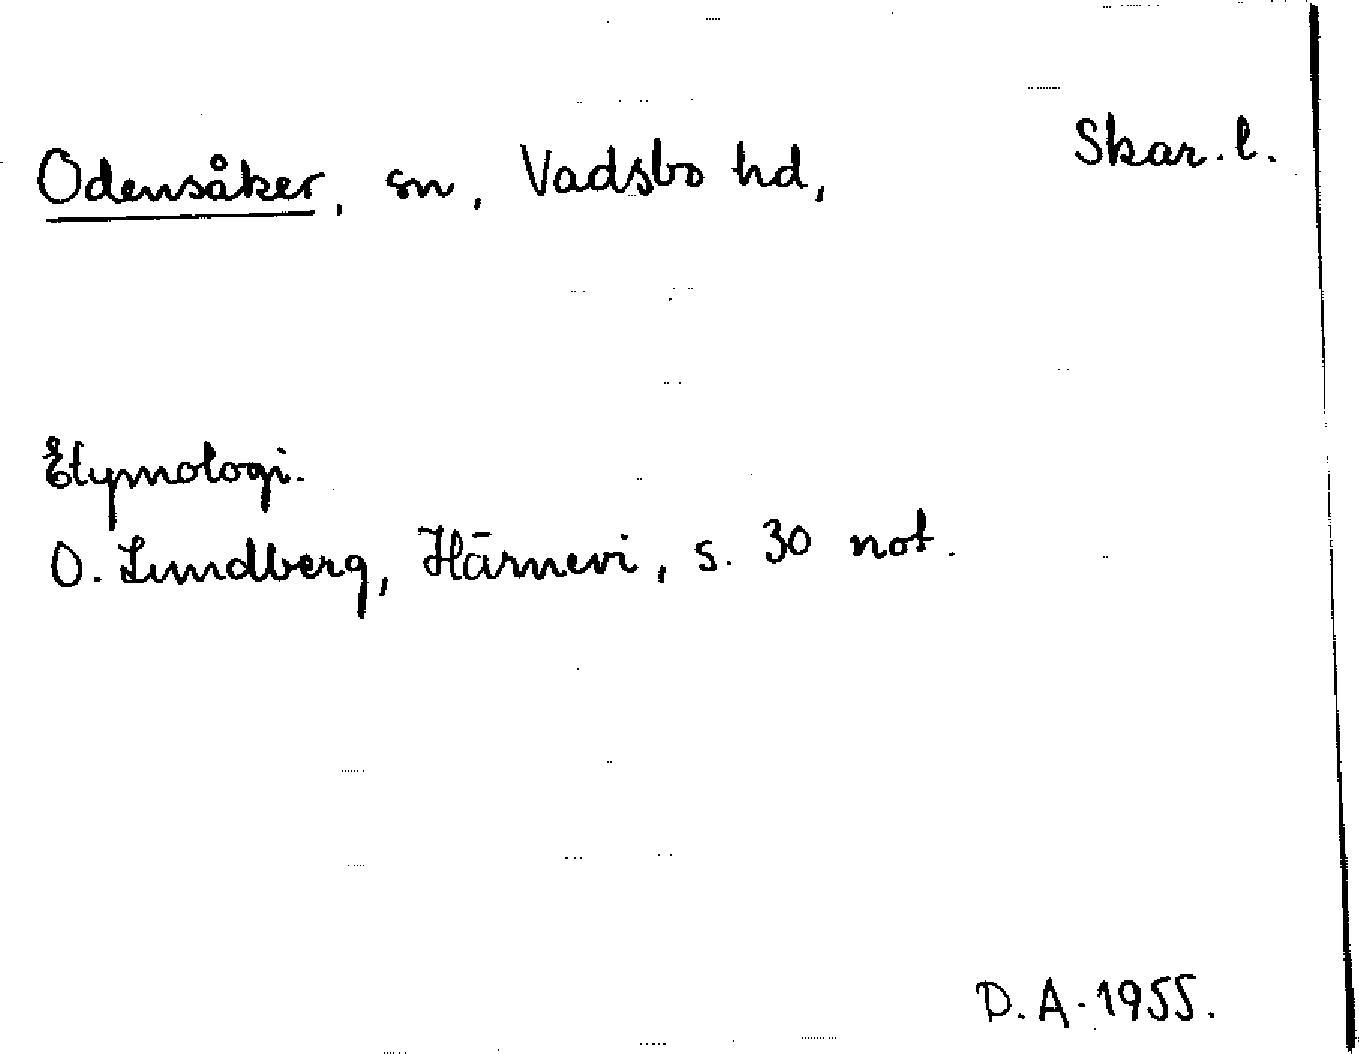 Odensåker, sn, Vadsbo hd, Skar. l.
Etymologi.
O. Lundberg, Härnevi, s. 30 not.
D. A. 1955.